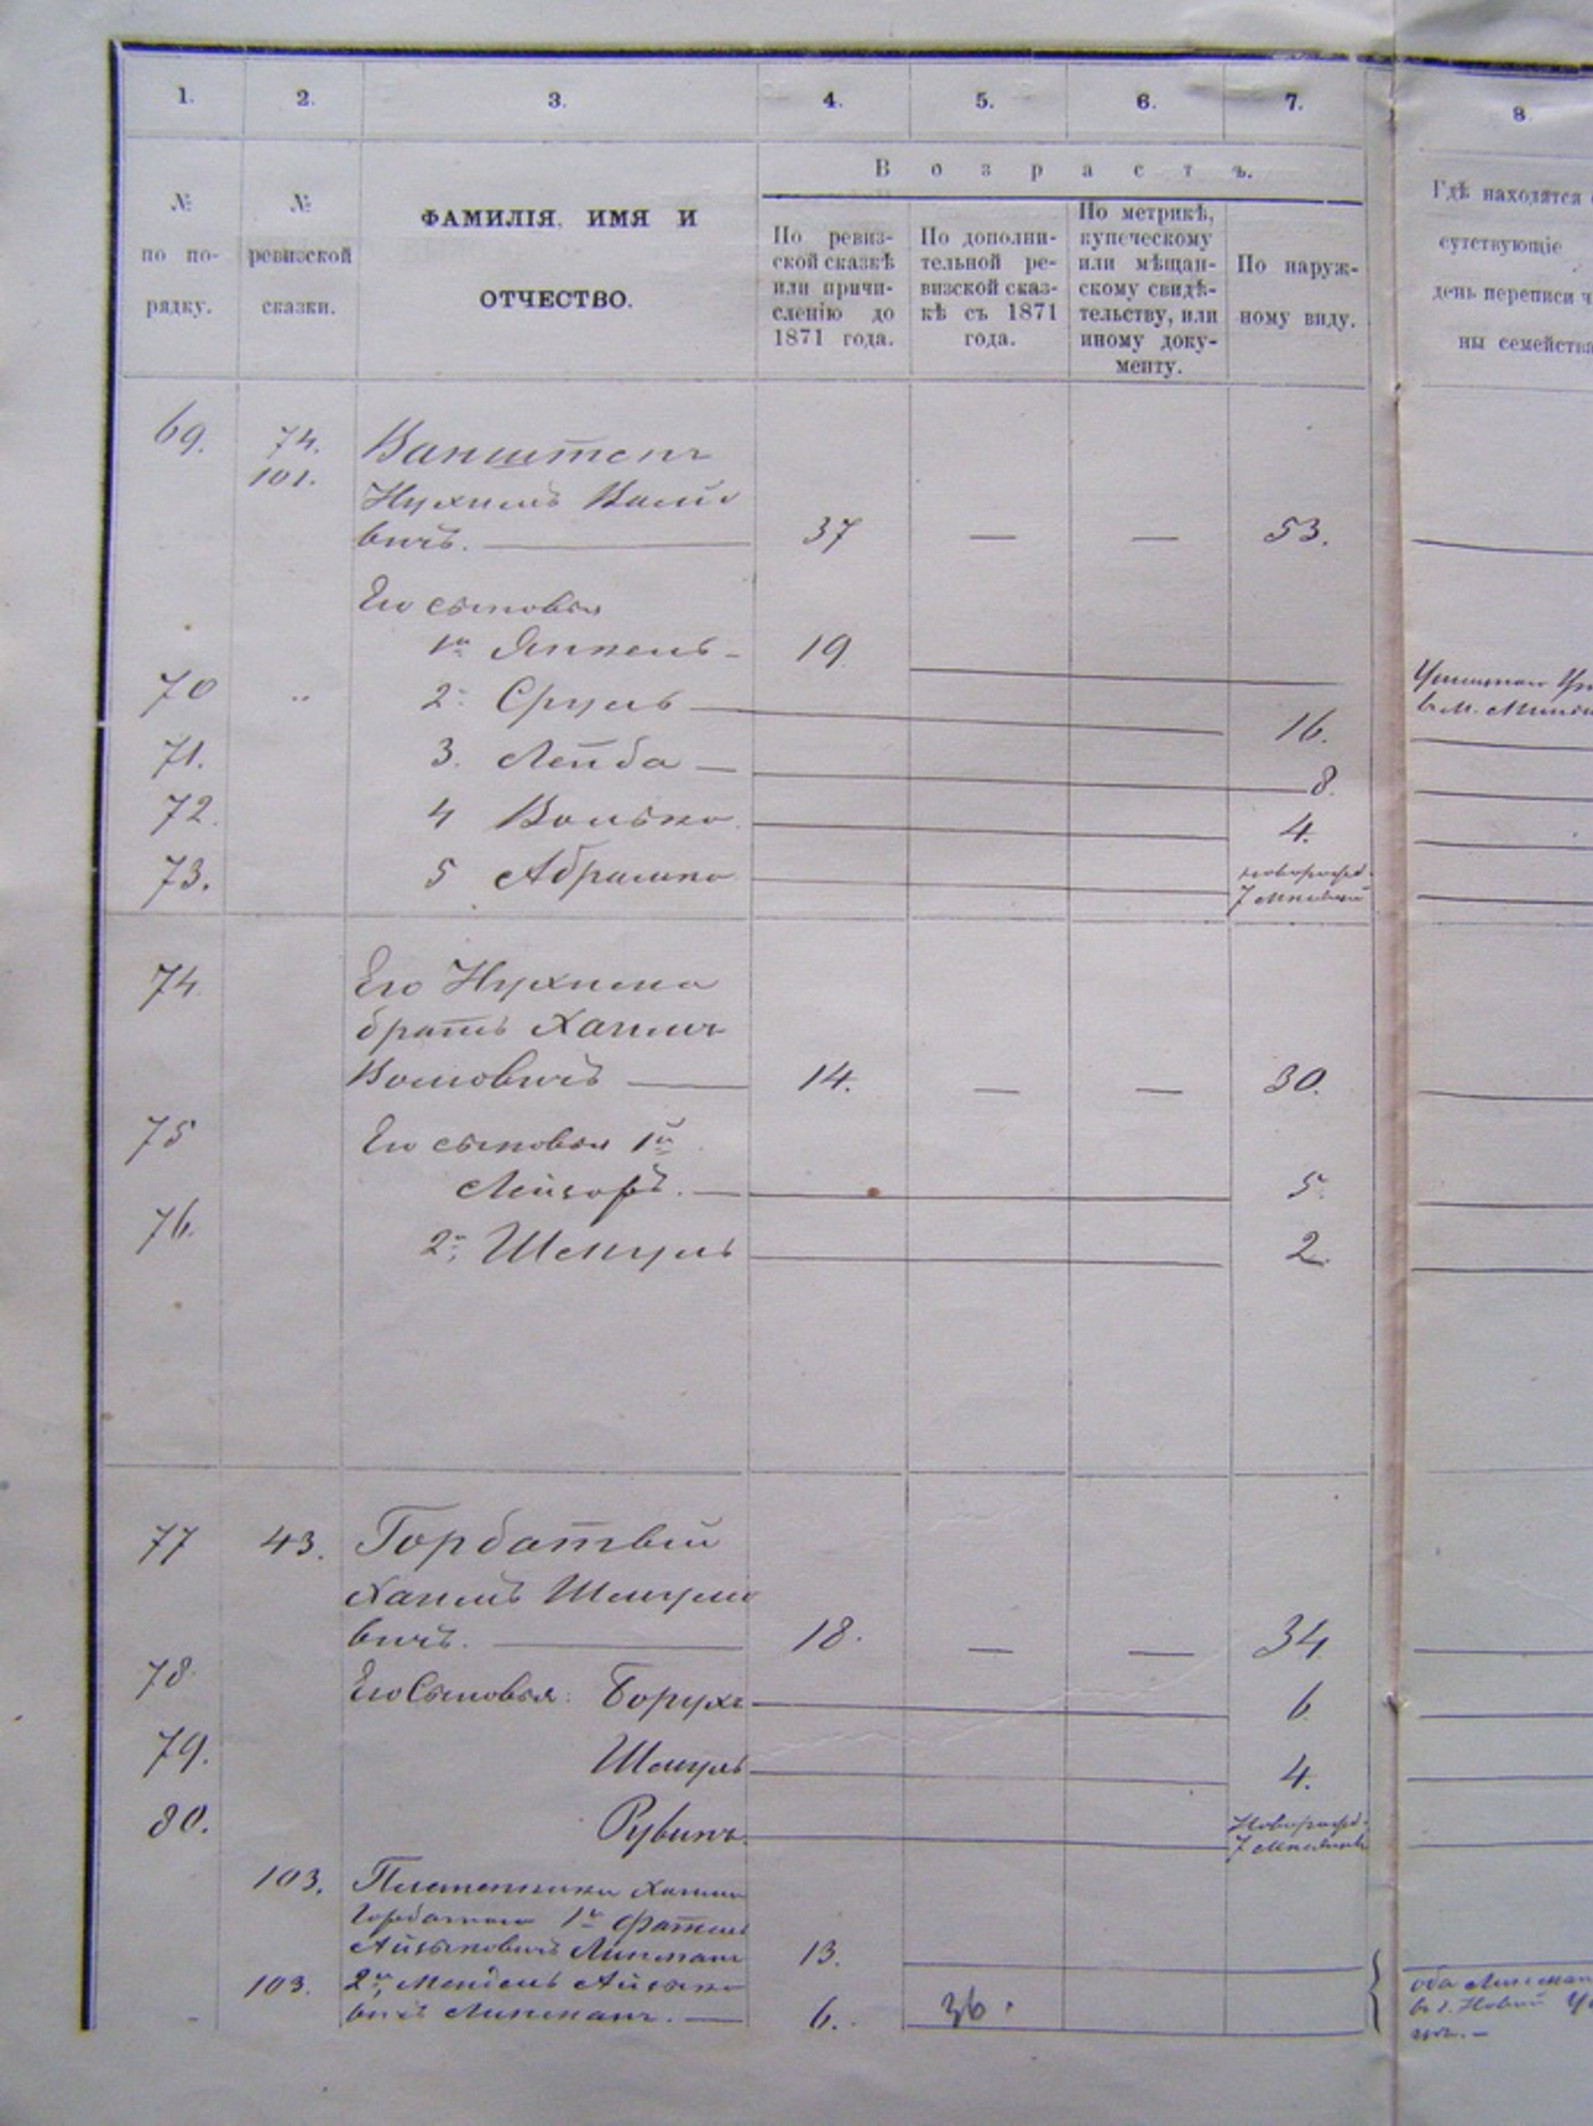 1. 2. 3. 4. 5. 6. 7. 8
№ по по-рядку.
№ ревизской сказки.
ФАМИЛІЯ, ИМЯ И
ОТЧЕСТВО.
Возрастъ.
По ревиз-
ской сказкѣ
или причи-
сленію до
1871 года.
По дополни-
тельной ре-
визской сказ-
кѣ съ 1871
года.
По метрикѣ,
купеческому
или мѣщан-
скому свидѣ-
тельству, или
иному доку-
менту.
По наруж-
ному виду.
Гдѣ находятся
сутствующіе
день переписи ч
ны семейства
69. 74. Ванштенъ
101. Нухимъ Вольо
вичъ. — 37 — — 53.
Его сыновья
1й Янкель - 19
70 " 2й Сруль — 16.
71. 3. Лейба — 8.
72. 4 Волько 4.
73. 5 Абрамко новорожд.
7 мѣсяцевъ
74 Его Нухима
братъ Хаимъ
Вольовичъ — 14. — — 30.
75 Его сыновья 1й
Лейзоръ. — 5.
76. 2й, Шмуль 2.
77 43. Горбатый
Хаимъ Шмульо
вичъ. — 18. — — 34
78 Его Сыновья: Борухъ 6
79. Шмуль 4.
80. Рувинъ Новорожд.
7 мѣсяцевъ
103. Племянники Хаима
Горбатаго 1й
Айзыковичъ Липманъ 13.
103. 2й, Мендель Айзыко
вичъ Липманъ. — 6. 36.
оба Липман